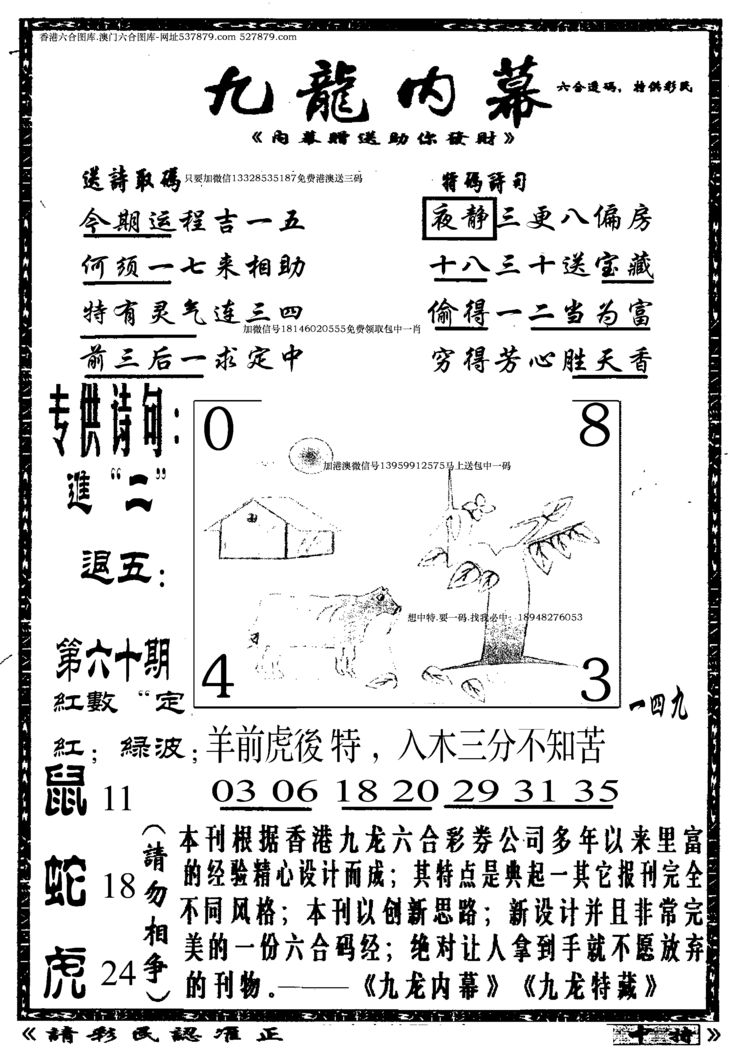 香港六合图库.澳门六合图库-网址537879.com 527879.com
九龍内幕
六合透码，特供彩民
《内幕赠送助你發财》
送詩取碼
只要加微信13328535187免费港澳送三码
特碼詩句
今期运程吉一五
夜静三更八偏房
何须一七来相助
十八三十送宝藏
特有灵气连三四
偷得一二当为富
加微信号18146020555免费领取包中一肖
前三后一求定中
穷得芳心胜天香
专供诗句：
進“二”
退五：
0
8
加港澳微信号13959912575马上送包中一码
想中特.要一码.找我必中：18948276053
4
3
第六十期
紅數“定
一四九
紅；綠波；羊前虎後特，入木三分不知苦
鼠 11
03 06 18 20 29 31 35
蛇 18
虎 24
（請勿相争）
本刊根据香港九龙六合彩券公司多年以来里富
的经验精心设计而成；其特点是典起一其它报刊完全
不同风格；本刊以创新思路；新设计并且非常完
美的一份六合码经；绝对让人拿到手就不愿放弃
的刊物.——《九龙内幕》《九龙特藏》
《請彩民認准正
》